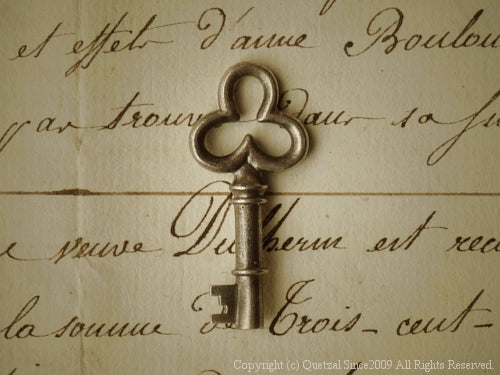 et effets d'anne Boulou
par trouv dans sa su
e veuve Dulherm est rec
la somme de Trois-cent-
Copyright (c) Quetzal Since2009 All Rights Reserved.